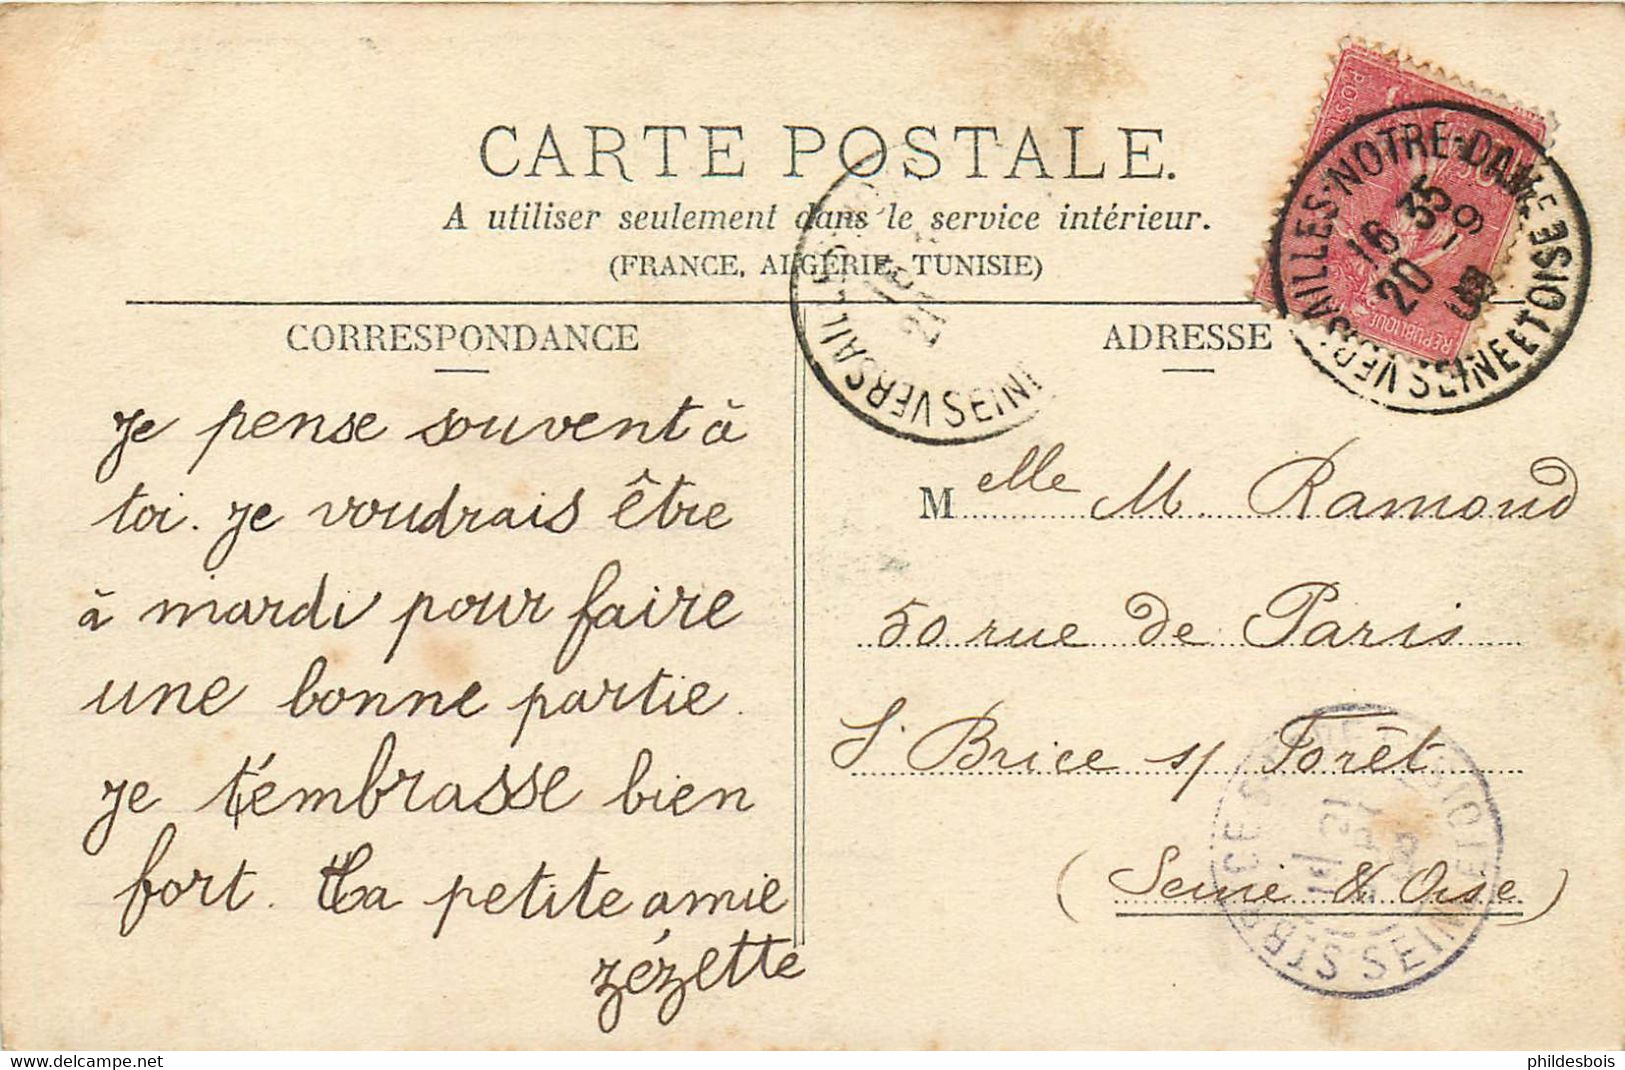 CARTE POSTALE.
A utiliser seulement dans le service intérieur.
(FRANCE, ALGÉRIE, TUNISIE)
CORRESPONDANCE
je pense souvent à
toi. je voudrais être
à mardi pour faire
une bonne partie.
je t'embrasse bien
fort. Ta petite amie
zézette
ADRESSE
Melle M. Ramond
50 rue de Paris
St Brice s/ Forêt
(Seine & Oise)
VERSAILLES-NOTRE-DAME
16 35
20
SEINE ET OISE
VERSAILLES
21
SEINE
ST BRICE
SEINE
www.delcampe.net
phildesbois